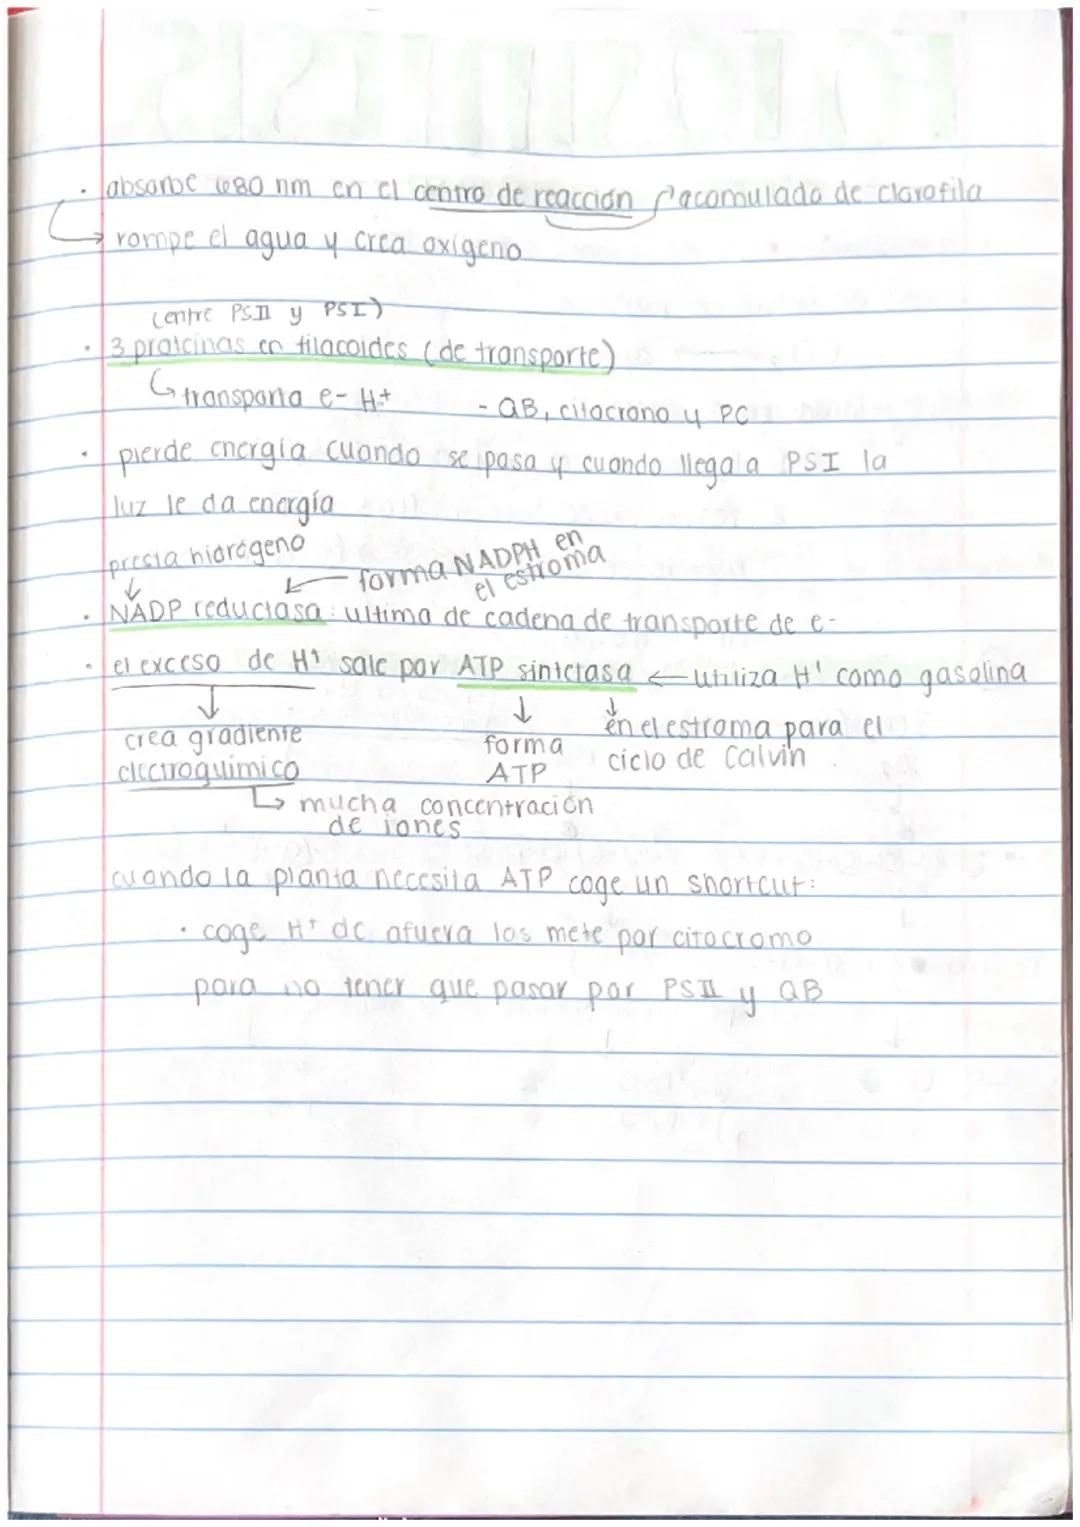 · absorbe 680 nm en el centro de reacción acomulado de clorofila
→ rompe el agua y crea oxígeno
(entre PSII y PSI)
· 3 proteínas en tilacoides (de transporte)
↳ transporta e- H+ - QB, citocrono y PC
· pierde energía cuando se pasa y cuando llega a PSI la
luz le da energía
presta hidrógeno ← forma NADPH en
el estroma
· NADP reductasa: ultima de cadena de transporte de e-
· el exceso de H+ sale por ATP sintetasa ← utiliza H+ como gasolina
↓ ↓ ↓ en el estroma para el
crea gradiente forma ciclo de Calvin
electroquímico ATP
↳ mucha concentración
de iones
cuando la planta necesita ATP coge un shortcut:
· coge H+ de afuera los mete por citocromo
para no tener que pasar por PSII y QB